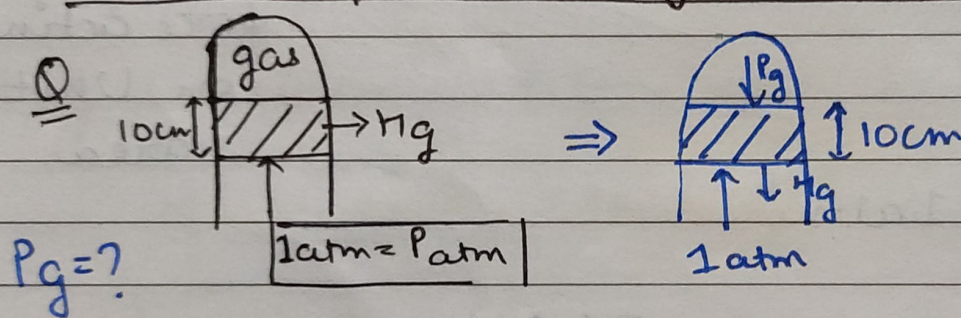 Q
gas
10cm
Hg
⇒
Pg
10cm
Hg
1 atm
1atm = Patm
Pg = ?